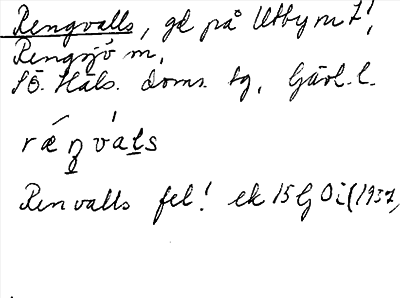 Rengvalls, gd på Utby nr 7!,
Rengsjö sn,
SÖ. Häls. doms. tg, Gävl. l.
ræŋváḷs
Renvalls fel! ek 15 G Oi (1937,